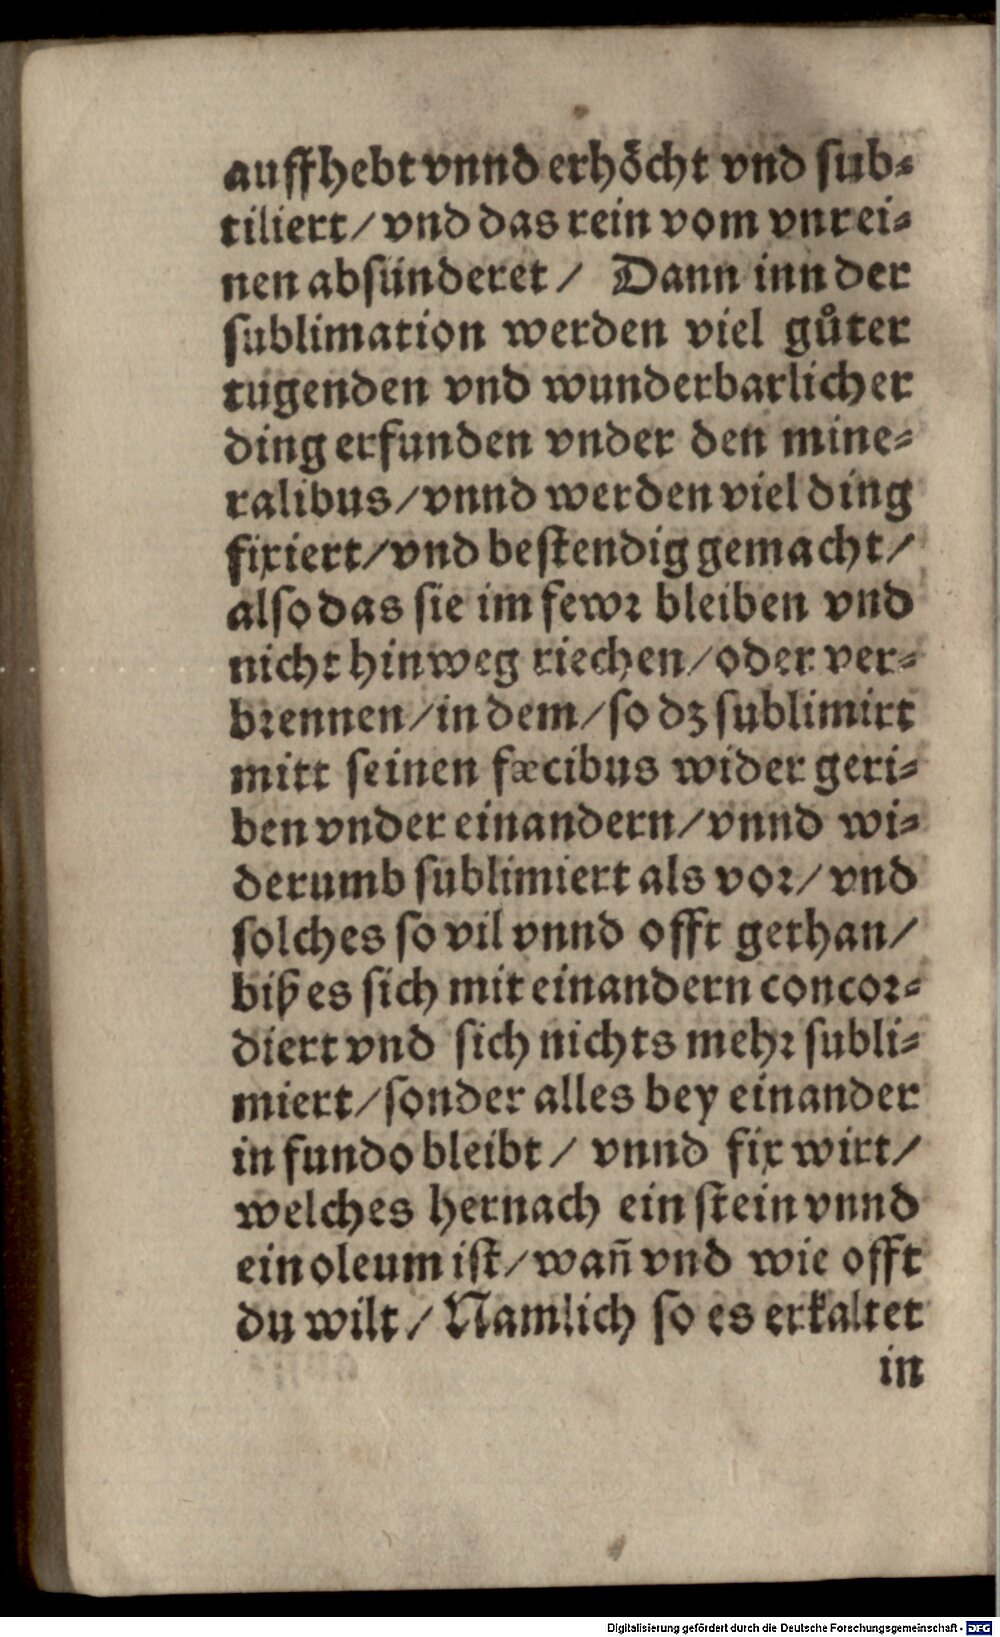 auffhebt vnnd erhoͤcht vnd sub⸗
tiliert/ vnd das rein vom vnrei⸗
nen absünderet/ Dann inn der
sublimation werden viel gůter
tugenden vnd wunderbarlicher
ding erfunden vnder den mine⸗
ralibus/ vnnd werden viel ding
fixiert/ vnd bestendig gemacht/
also das sie im fewr bleiben vnd
nicht hinweg riechen/ oder ver⸗
brennen/ in dem/ so dz sublimirt
mitt seinen fæcibus wider geri⸗
ben vnder einandern/ vnnd wi⸗
derumb sublimiert als vor/ vnd
solches so vil vnnd offt gethan/
biß es sich mit einandern concor⸗
diert vnd sich nichts mehr subli⸗
miert/ sonder alles bey einander
in fundo bleibt/ vnnd fix wirt/
welches hernach ein stein vnnd
ein oleum ist/ wañ vnd wie offt
du wilt/ Namlich so es erkaltet
in
Digitalisierung gefördert durch die Deutsche Forschungsgemeinschaft - DFG